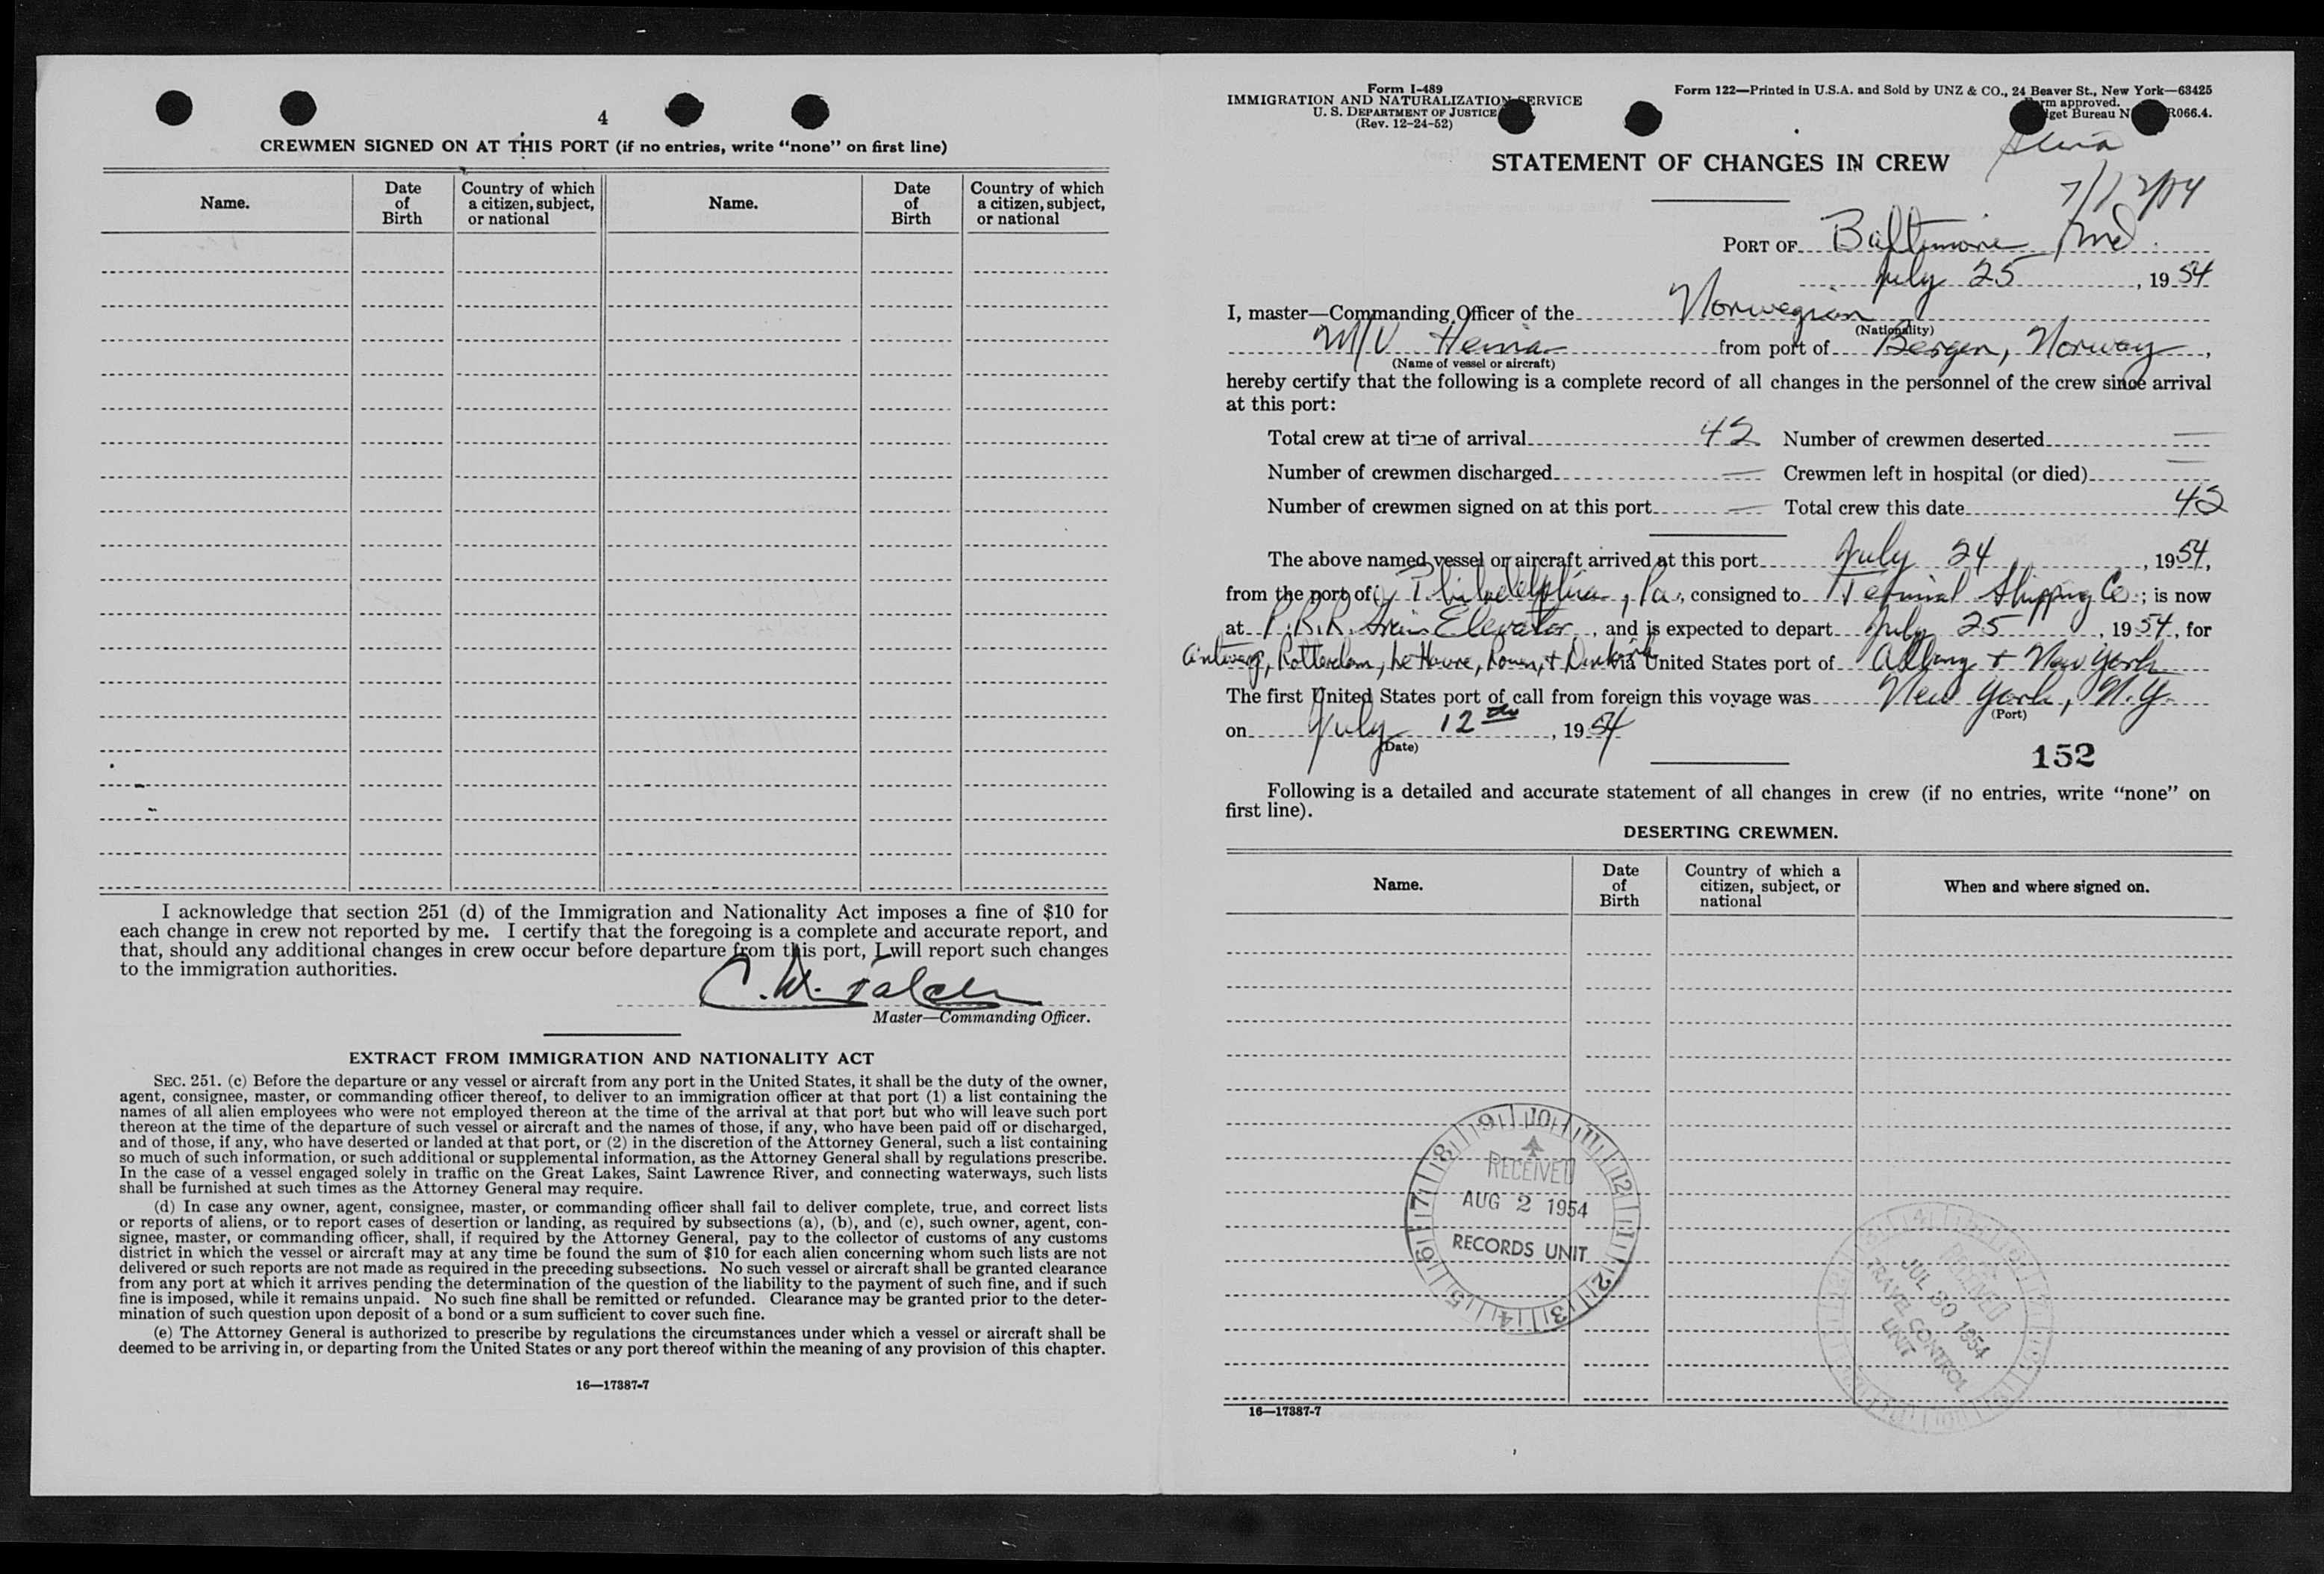 4
CREWMEN SIGNED ON AT THIS PORT (if no entries, write “none” on first line)
Name. Date of Birth Country of which a citizen, subject, or national Name. Date of Birth Country of which a citizen, subject, or national
I acknowledge that section 251 (d) of the Immigration and Nationality Act imposes a fine of $10 for
each change in crew not reported by me. I certify that the foregoing is a complete and accurate report, and
that, should any additional changes in crew occur before departure from this port, I will report such changes
to the immigration authorities.
Master—Commanding Officer.
EXTRACT FROM IMMIGRATION AND NATIONALITY ACT
SEC. 251. (c) Before the departure or any vessel or aircraft from any port in the United States, it shall be the duty of the owner,
agent, consignee, master, or commanding officer thereof, to deliver to an immigration officer at that port (1) a list containing the
names of all alien employees who were not employed thereon at the time of the arrival at that port but who will leave such port
thereon at the time of the departure of such vessel or aircraft and the names of those, if any, who have been paid off or discharged,
and of those, if any, who have deserted or landed at that port, or (2) in the discretion of the Attorney General, such a list containing
so much of such information, or such additional or supplemental information, as the Attorney General shall by regulations prescribe.
In the case of a vessel engaged solely in traffic on the Great Lakes, Saint Lawrence River, and connecting waterways, such lists
shall be furnished at such times as the Attorney General may require.
(d) In case any owner, agent, consignee, master, or commanding officer shall fail to deliver complete, true, and correct lists
or reports of aliens, or to report cases of desertion or landing, as required by subsections (a), (b), and (c), such owner, agent, con-
signee, master, or commanding officer, shall, if required by the Attorney General, pay to the collector of customs of any customs
district in which the vessel or aircraft may at any time be found the sum of $10 for each alien concerning whom such lists are not
delivered or such reports are not made as required in the preceding subsections. No such vessel or aircraft shall be granted clearance
from any port at which it arrives pending the determination of the question of the liability to the payment of such fine, and if such
fine is imposed, while it remains unpaid. No such fine shall be remitted or refunded. Clearance may be granted prior to the deter-
mination of such question upon deposit of a bond or a sum sufficient to cover such fine.
(e) The Attorney General is authorized to prescribe by regulations the circumstances under which a vessel or aircraft shall be
deemed to be arriving in, or departing from the United States or any port thereof within the meaning of any provision of this chapter.
16—17387-7
Form I-489
IMMIGRATION AND NATURALIZATION SERVICE
U. S. DEPARTMENT OF JUSTICE
(Rev. 12-24-52)
Form 122—Printed in U.S.A. and Sold by UNZ & CO., 24 Beaver St., New York—63425
approved.
Bureau R066.4.
STATEMENT OF CHANGES IN CREW
PORT OF Baltimore Md.
July 25, 1954
I, master—Commanding Officer of the Norwegian
(Nationality)
M/V Heina from port of Bergen, Norway,
(Name of vessel or aircraft)
hereby certify that the following is a complete record of all changes in the personnel of the crew since arrival
at this port:
Total crew at time of arrival 42 Number of crewmen deserted —
Number of crewmen discharged — Crewmen left in hospital (or died) —
Number of crewmen signed on at this port — Total crew this date 42
The above named vessel or aircraft arrived at this port July 24, 1954,
from the port of Philadelphia, Pa., consigned to Terminal Shipping Co.; is now
at P.R.R. Grain Elevator, and is expected to depart July 25, 1954, for
Antwerp, Rotterdam, Le Havre, Rouen, + Dunkirk via United States port of Albany + New York
The first United States port of call from foreign this voyage was New York, N.Y.
(Port)
on July 12th, 1954
(Date)
152
Following is a detailed and accurate statement of all changes in crew (if no entries, write “none” on
first line).
DESERTING CREWMEN.
Name. Date of Birth Country of which a citizen, subject, or national When and where signed on.
RECEIVED
AUG 2 1954
RECORDS UNIT
RECEIVED
JUL 30 1954
TRAVEL CONTROL
UNIT
16—17387-7